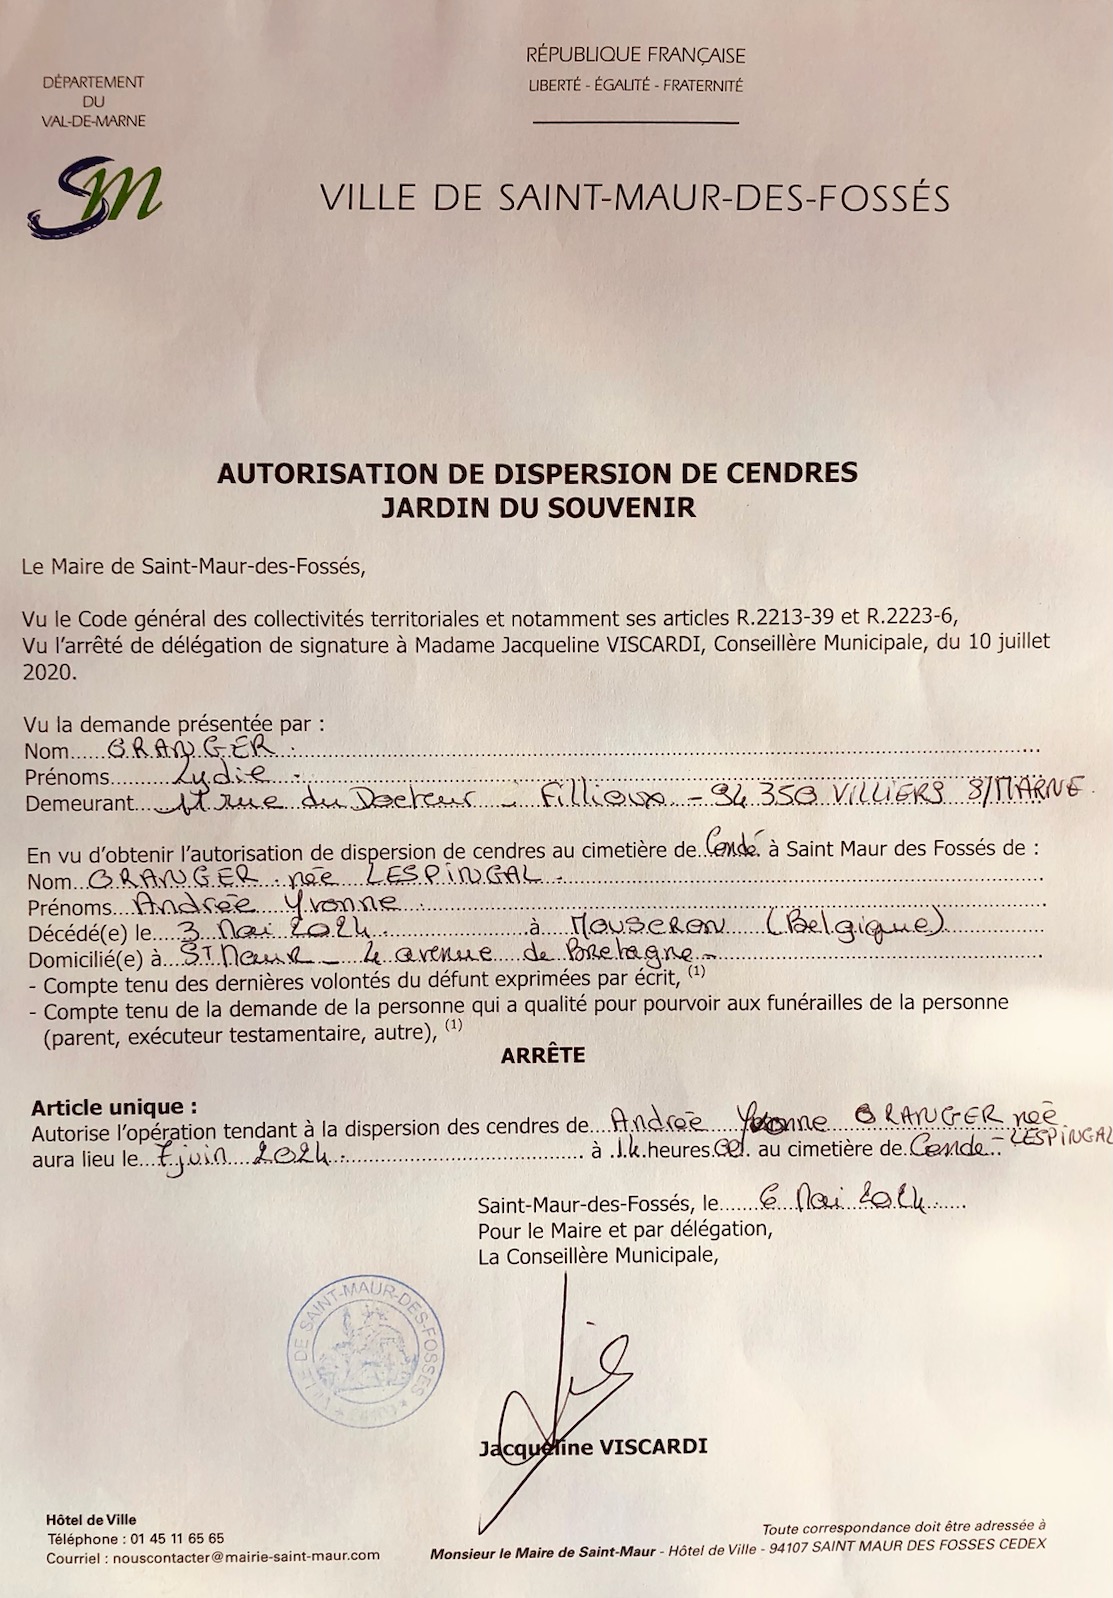 DÉPARTEMENT
DU
VAL-DE-MARNE
SM
RÉPUBLIQUE FRANÇAISE
LIBERTÉ - ÉGALITÉ - FRATERNITÉ
VILLE DE SAINT-MAUR-DES-FOSSÉS
AUTORISATION DE DISPERSION DE CENDRES
JARDIN DU SOUVENIR
Le Maire de Saint-Maur-des-Fossés,
Vu le Code général des collectivités territoriales et notamment ses articles R.2213-39 et R.2223-6,
Vu l'arrêté de délégation de signature à Madame Jacqueline VISCARDI, Conseillère Municipale, du 10 juillet
2020.
Vu la demande présentée par :
Nom GRANGER
Prénoms Lydie
Demeurant rue du Docteur Fillioux - 94 350 VILLIERS S/MARNE
En vu d'obtenir l'autorisation de dispersion de cendres au cimetière de Condé à Saint Maur des Fossés de :
Nom GRANGER née LESPINGAL
Prénoms Andrée Yvonne
Décédé(e) le 3 Mai 2024 à Mouscron (Belgique)
Domicilié(e) à ST Maur - 4 avenue de Bretagne
- Compte tenu des dernières volontés du défunt exprimées par écrit, (1)
- Compte tenu de la demande de la personne qui a qualité pour pourvoir aux funérailles de la personne
(parent, exécuteur testamentaire, autre), (1)
ARRÊTE
Article unique :
Autorise l'opération tendant à la dispersion des cendres de Andrée Yvonne GRANGER née
LESPINGAL
aura lieu le 7 juin 2024 à 14 heures 00 au cimetière de Condé
Saint-Maur-des-Fossés, le 6 Mai 2024
Pour le Maire et par délégation,
La Conseillère Municipale,
VILLE DE SAINT-MAUR-DES-FOSSES
Jacqueline VISCARDI
Hôtel de Ville
Téléphone : 01 45 11 65 65
Courriel : nouscontacter@mairie-saint-maur.com
Toute correspondance doit être adressée à
Monsieur le Maire de Saint-Maur - Hôtel de Ville - 94107 SAINT MAUR DES FOSSES CEDEX